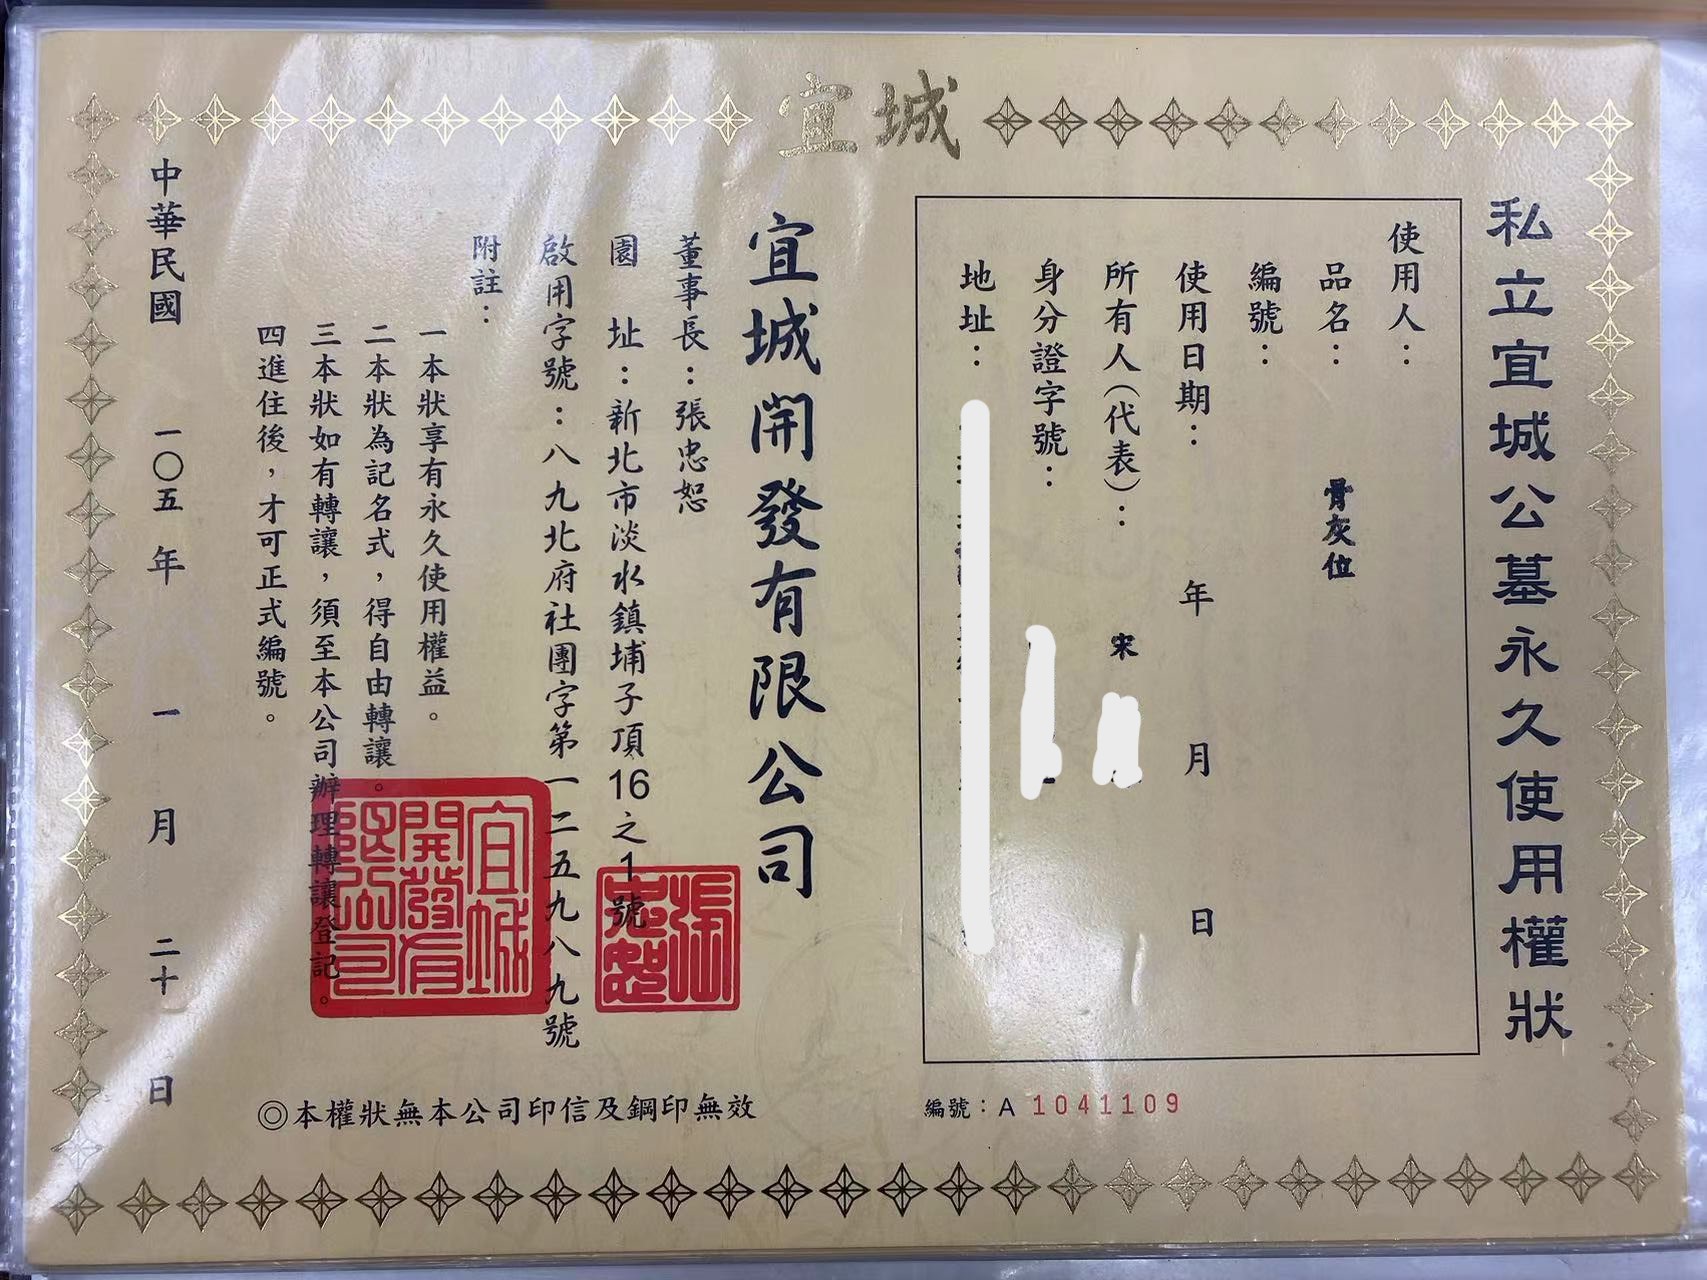 宜城
私立宜城公墓永久使用權狀
使用人：
品名：骨灰位
編號：
使用日期：年月日
所有人（代表）：宋
身分證字號：
地址：
編號：A 1041109
宜城開發有限公司
董事長：張忠恕
園址：新北市淡水鎮埔子頂16之1號
啟用字號：八九北府社團字第一二五九八九號
附註：
一本狀享有永久使用權益。
二本狀為記名式，得自由轉讓。
三本狀如有轉讓，須至本公司辦理轉讓登記。
四進住後，才可正式編號。
中華民國一〇五年一月二十日
◎本權狀無本公司印信及鋼印無效
張忠恕
宜城開發有限公司